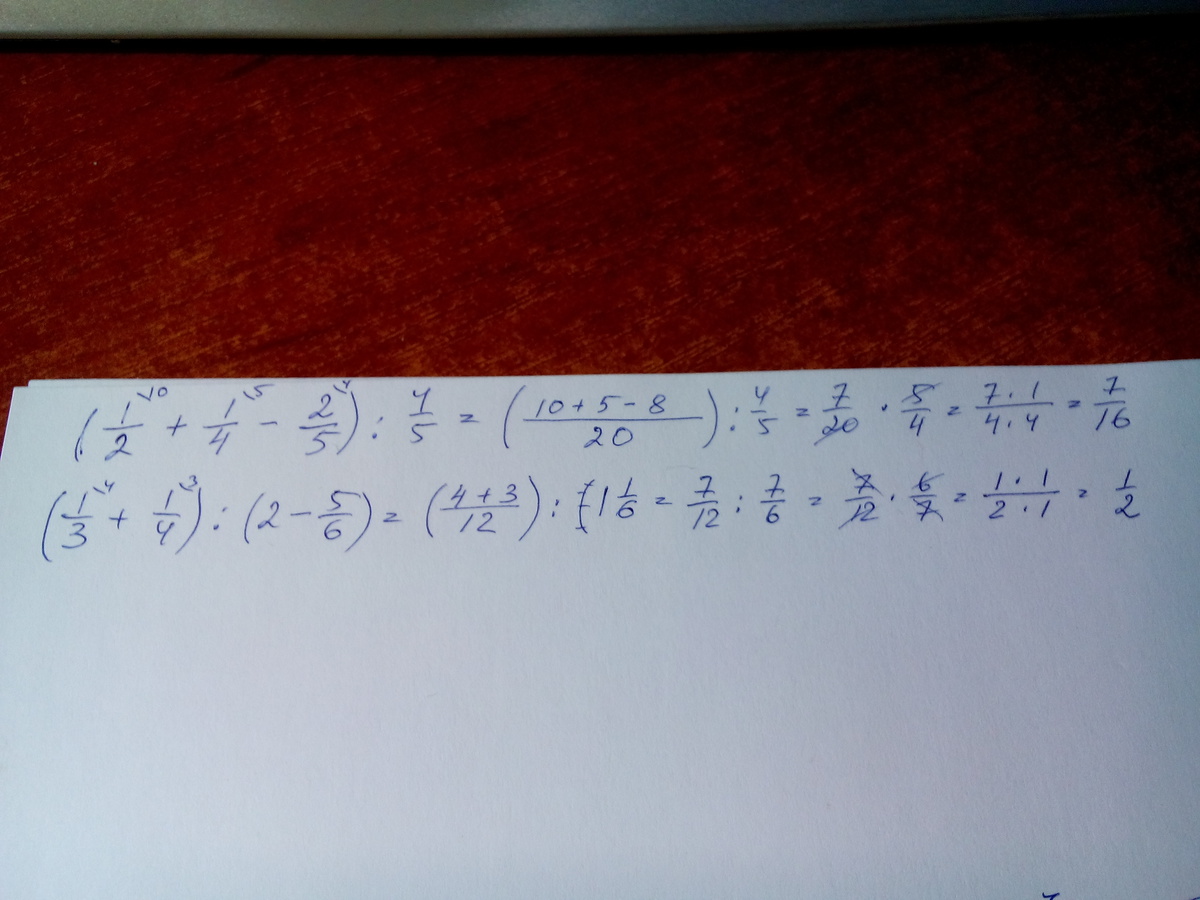 (1/2\10 + 1/4\5 − 2/5\4) : 4/5 = ((10+5−8)/20) : 4/5 = 7/20 · 5/4 = (7·1)/(4·4) = 7/16
(1/3\4 + 1/4\3) : (2 − 5/6) = ((4+3)/12) : 1 1/6 = 7/12 : 7/6 = 7/12 · 6/7 = (1·1)/(2·1) = 1/2